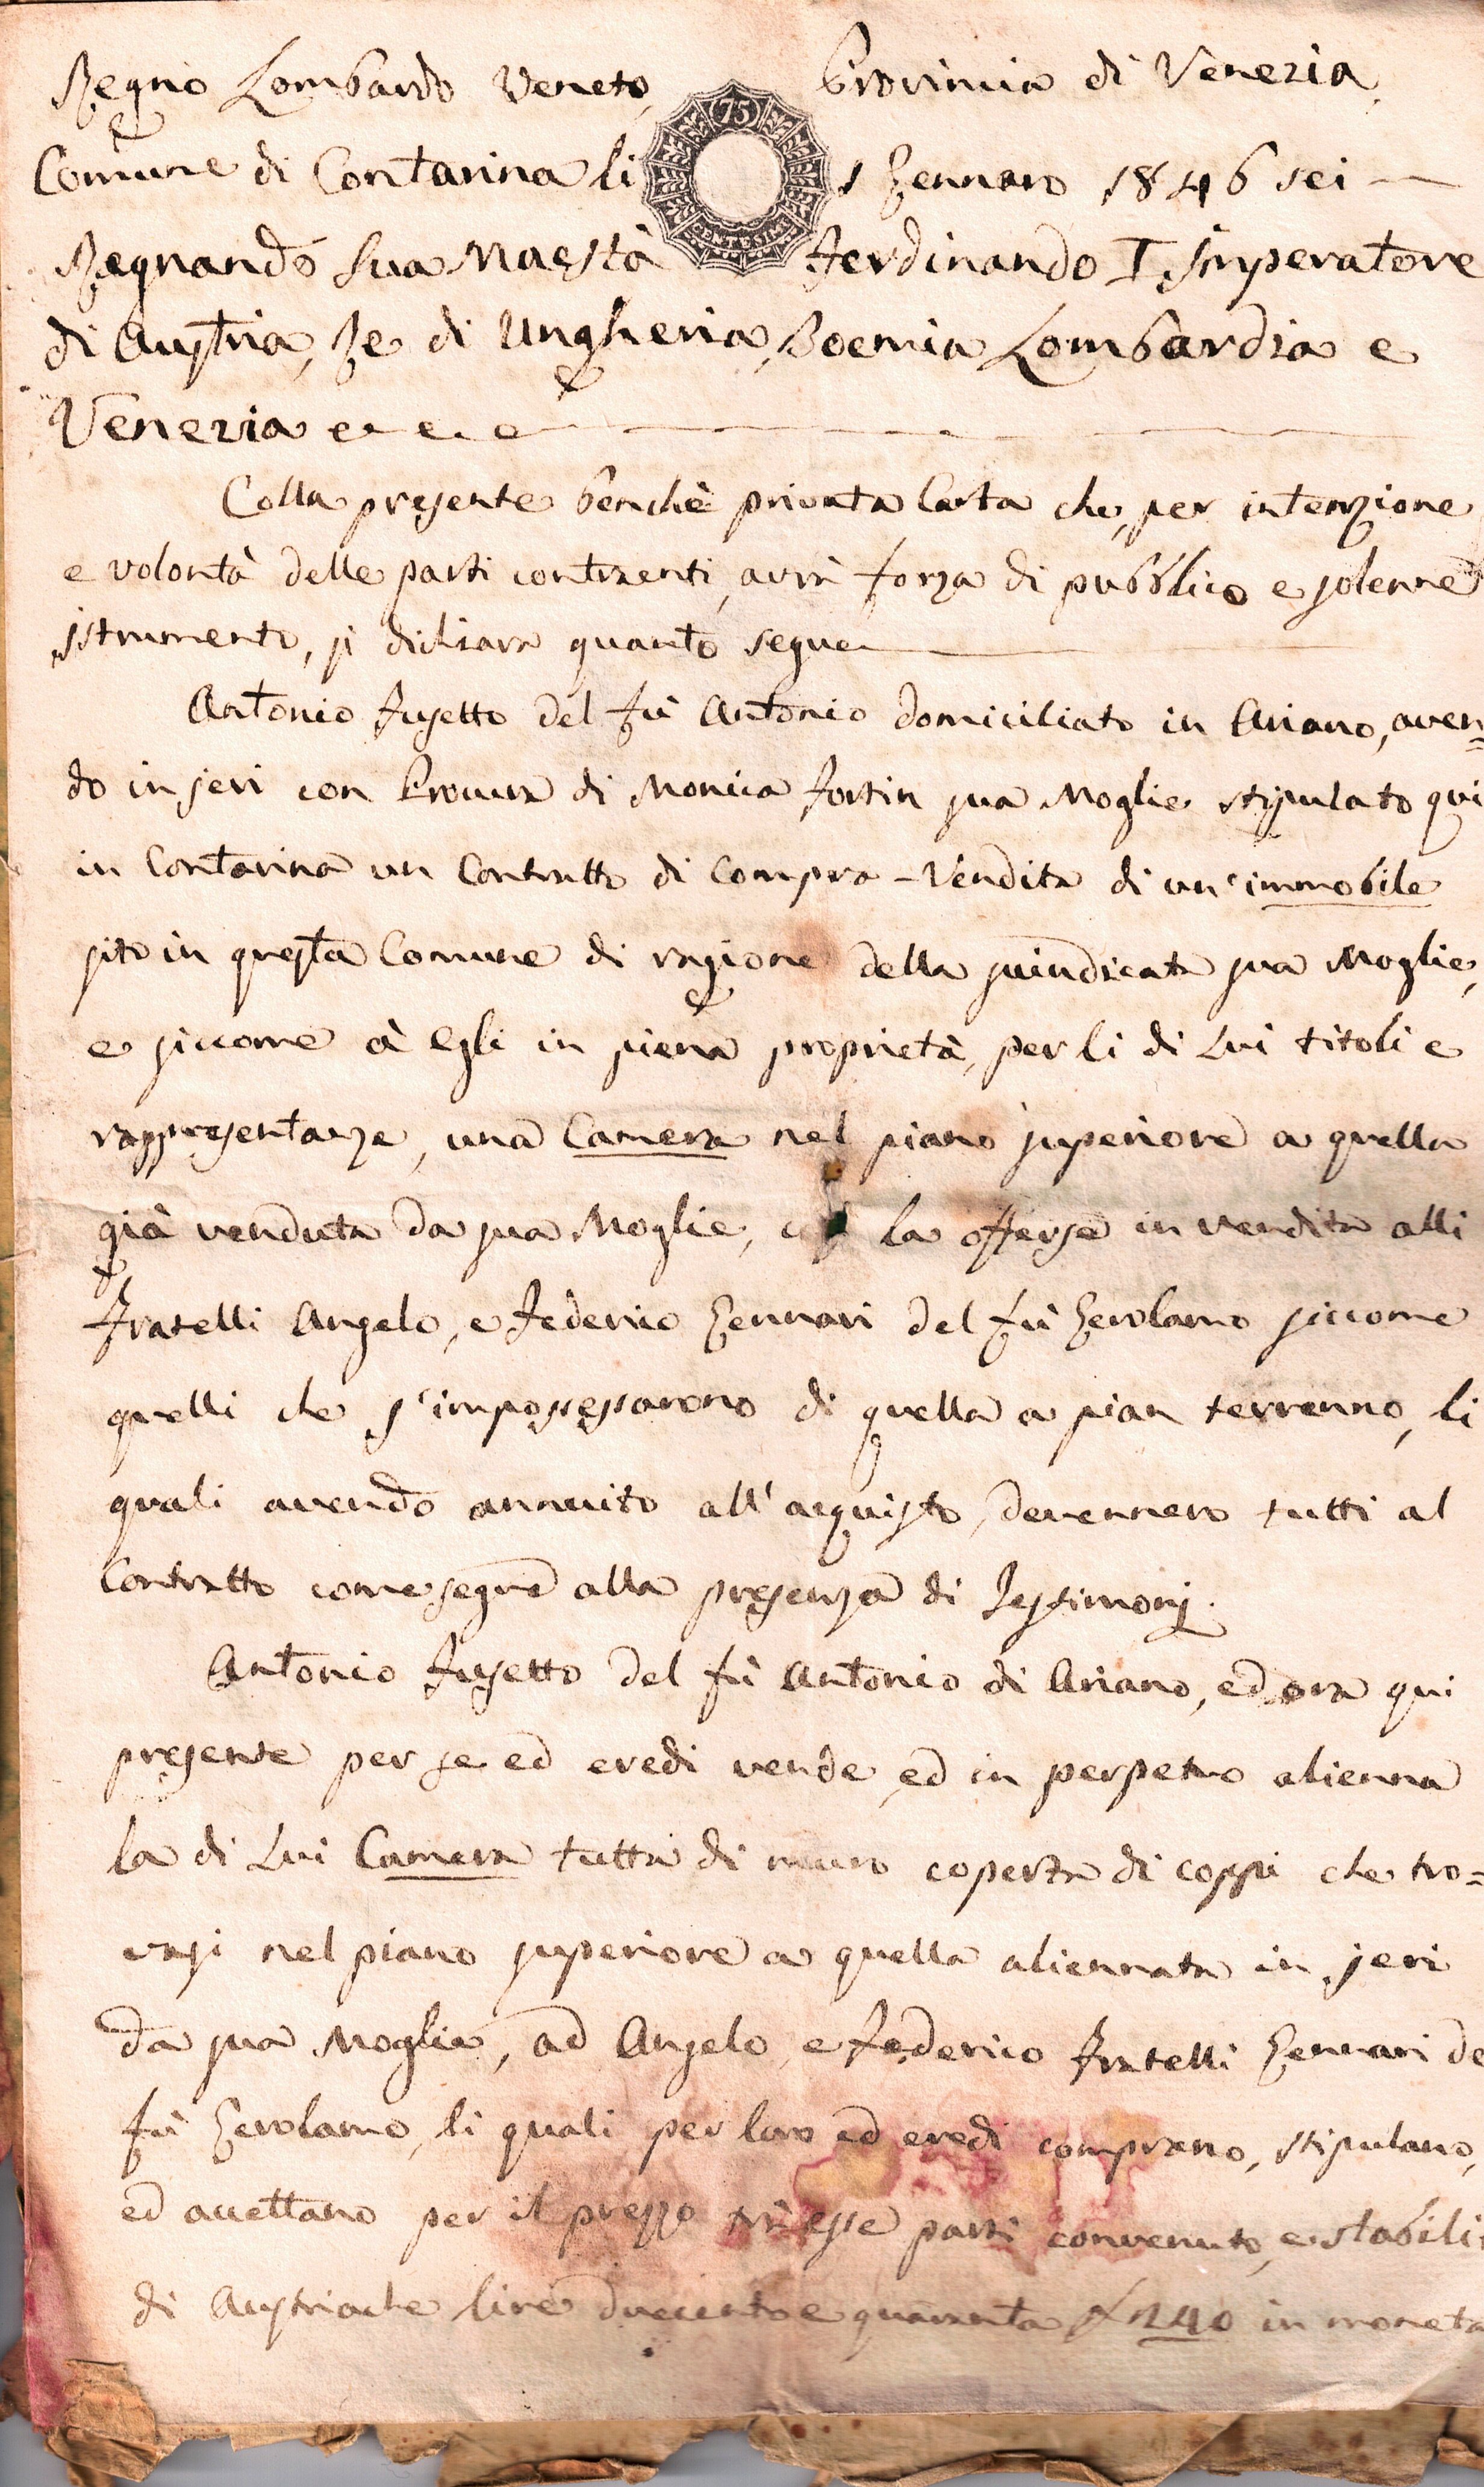 Regno Lombardo Veneto, Provincia di Venezia,
75
CENTESIMI
Comune di Contarina li 1 Gennaro 1846 sei
Regnando Sua Maestà Ferdinando I Imperatore
di Austria, Re di Ungheria, Boemia Lombardia e
Venezia e. e. e
Colla presente benchè privata Carta che, per intenzione
e volontà delle parti contraenti, avrà forza di pubblico e solenne
istrumento, si dichiara quanto segue
Antonio Fusetto del fù Antonio domiciliato in Ariano, aven=
do in jeri con Procura di Monica Fortin sua Moglie stipulato qui
in Contarina un Contratto di Compra-Vendita di un'immobile
sito in questa Comune di ragione della suindicata sua Moglie,
e siccome à Egli in piena proprietà, per li di Lui titoli e
rappresentanze, una Camera nel piano superiore a quella
già venduta da sua Moglie, la offerse in vendita alli
Fratelli Angelo, e Federico Gennari del fù Gerolamo siccome
quelli che s'impossessarono di quella a pian terrenno, li
quali avendo annuito all'acquisto, devennero tutti al
Contratto come segue alla presenza di Testimonj.
Antonio Fusetto del fù Antonio di Ariano, ed ora qui
presente per se ed eredi vende, ed in perpetuo alienna
la di Lui Camera tutta di muro coperta di coppi che tro=
vasi nel piano superiore a quella aliennata in jeri
da sua Moglie, ad Angelo, e Federico Fratelli Gennari de
fù Gerolamo, li quali per loro ed eredi comprano, stipulano,
ed accettano per il prezzo trà esse parti convenuto, e stabili
di Austriache lire duecento e quaranta £ 240 in moneta